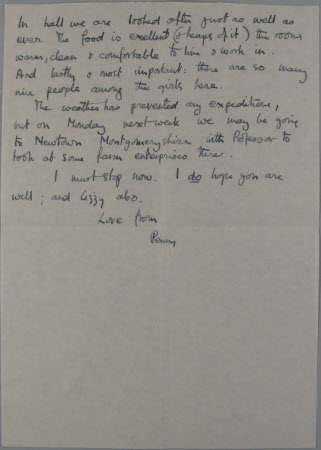 In hall we are looked after just as well as
ever. The food is excellent (& heaps of it) the rooms
warm, clean & comfortable to live & work in.
And lastly & most important: there are so many
nice people among the girls here.
The weather has prevented any expeditions,
but on Monday next week we may be going
to Newtown Montgomeryshire with Professor to
look at some farm enterprises there.
I must stop now. I do hope you are
well; and Lizzy also.
Love from
Penny